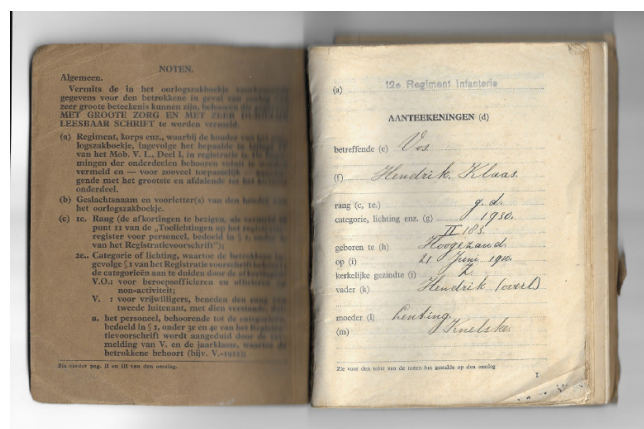 NOTEN.
Algemeen.
Vermits de in het oorlogszakboekje
gegevens voor den betrokkene in geval van oorlog
zeer groote beteekenis kunnen zijn, behooren
MET GROOTE ZORG EN MET ZEER DUIDELIJK
LEESBAAR SCHRIFT te worden vermeld.
(a) Regiment, korps enz., waarbij de houder van het oor-
logszakboekje, ingevolge het bepaalde in
van het Mob. V. L., Deel I, in registratie is. De
mingen der onderdeelen behooren voluit
vermeld en — voor zooveel toepasselijk —
gende met het grootste en afdalende tot het
onderdeel.
(b) Geslachtsnaam en voorletter(s) van den houder van
het oorlogszakboekje.
(c) 1e. Rang (de afkortingen te bezigen, als vermeld
punt 11 van de „Toelichtingen op het
register voor personeel, bedoeld in § 1,
van het Registratievoorschrift");
2e. Categorie of lichting, waartoe de betrokkene
gevolge § 1 van het Registratievoorschrift
de categorieën aan te duiden door de
V.O.: voor beroepsofficieren en officieren
non-activiteit;
V. : voor vrijwilligers, beneden den rang van
tweede luitenant, met dien verstande, dat
a. het personeel, behoorende tot de categorieën,
bedoeld in § 1, onder 3e en 4e van het Registra-
tievoorschrift wordt aangeduid door de ver-
melding van V. en de jaarklasse, waartoe de
betrokkene behoort (bijv. V.-1922)
Zie verder pag. II en III van den omslag.
(a) 12e Regiment Infanterie
AANTEEKENINGEN (d)
betreffende (e) Vos
(f) Hendrik. Klaas
rang (c, 1e.) g. d.
categorie, lichting enz. (g) 1930.
II 183
geboren te (h) Hoogezand
op (i) 21 Juni 1910
kerkelijke gezindte (i)
vader (k) Hendrik (overl)
moeder (l) Lenting
(m) Knelske
Zie voor den tekst van de noten het gestelde op den omslag
1